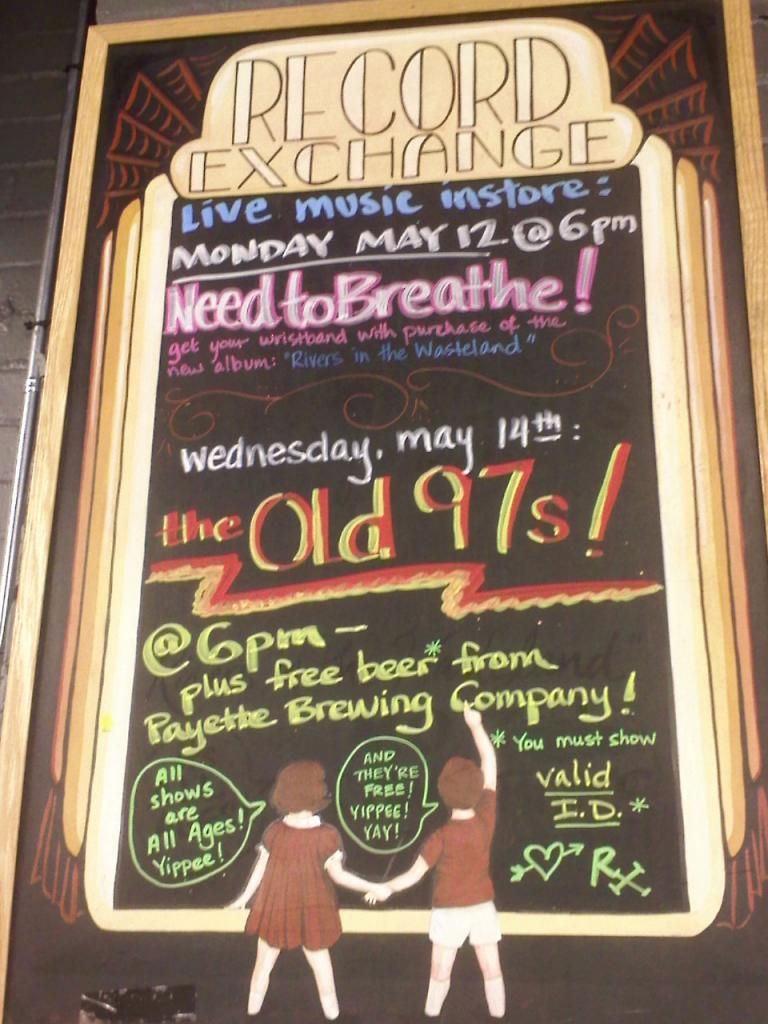 RECORD
EXCHANGE
Live music instore:
MONDAY MAY 12 @ 6pm
NeedtoBreathe!
get your wristband with purchase of the
new album: "Rivers in the Wasteland"
wednesday, may 14th:
the Old 97s!
@6pm-
plus free beer* from
Payette Brewing Company!
* You must show
valid
I.D.*
All
shows
are
All Ages!
Yippee!
AND
THEY'RE
FREE!
YIPPEE!
YAY!
RX